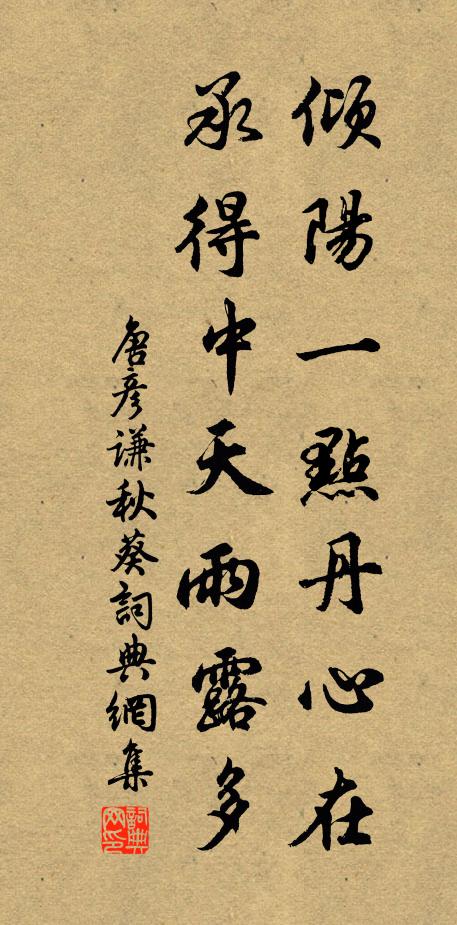 傾陽一點丹心在
承得中天雨露多
唐彥謙秋葵詞典網集
詞典網印